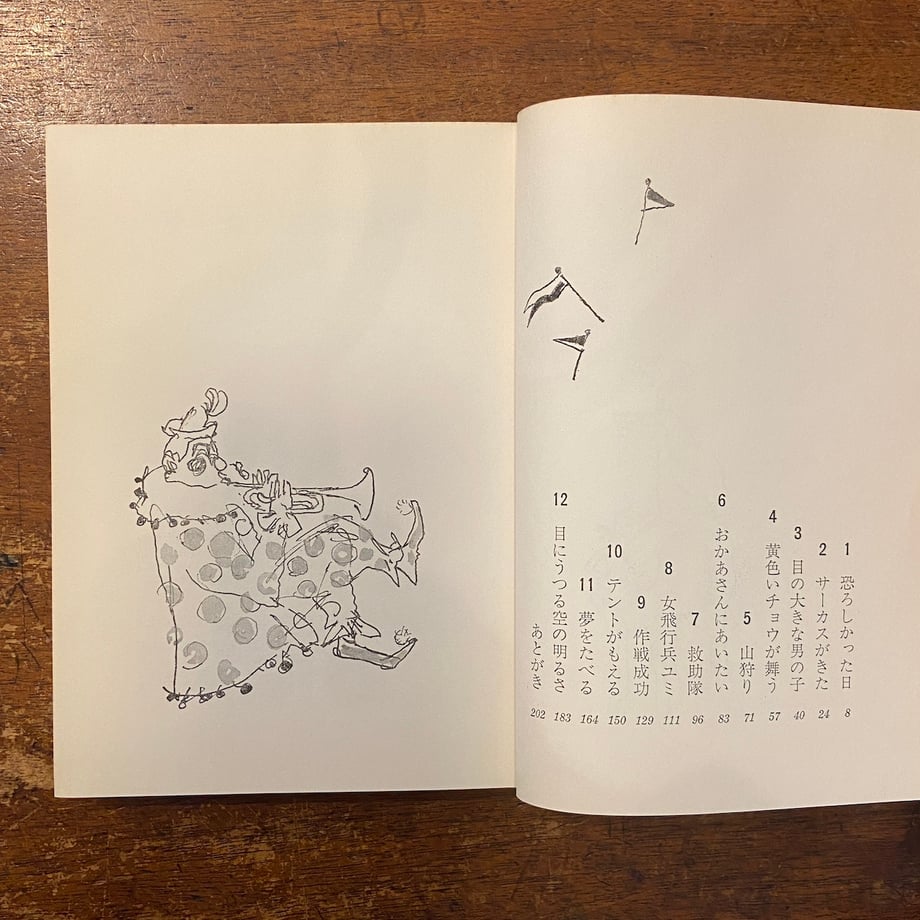 1 恐ろしかった日 8
2 サーカスがきた 24
3 目の大きな男の子 40
4 黄色いチョウが舞う 57
5 山狩り 71
6 おかあさんにあいたい 83
7 救助隊 96
8 女飛行兵ユミ 111
9 作戦成功 129
10 テントがもえる 150
11 夢をたべる 164
12 目にうつる空の明るさ 183
あとがき 202